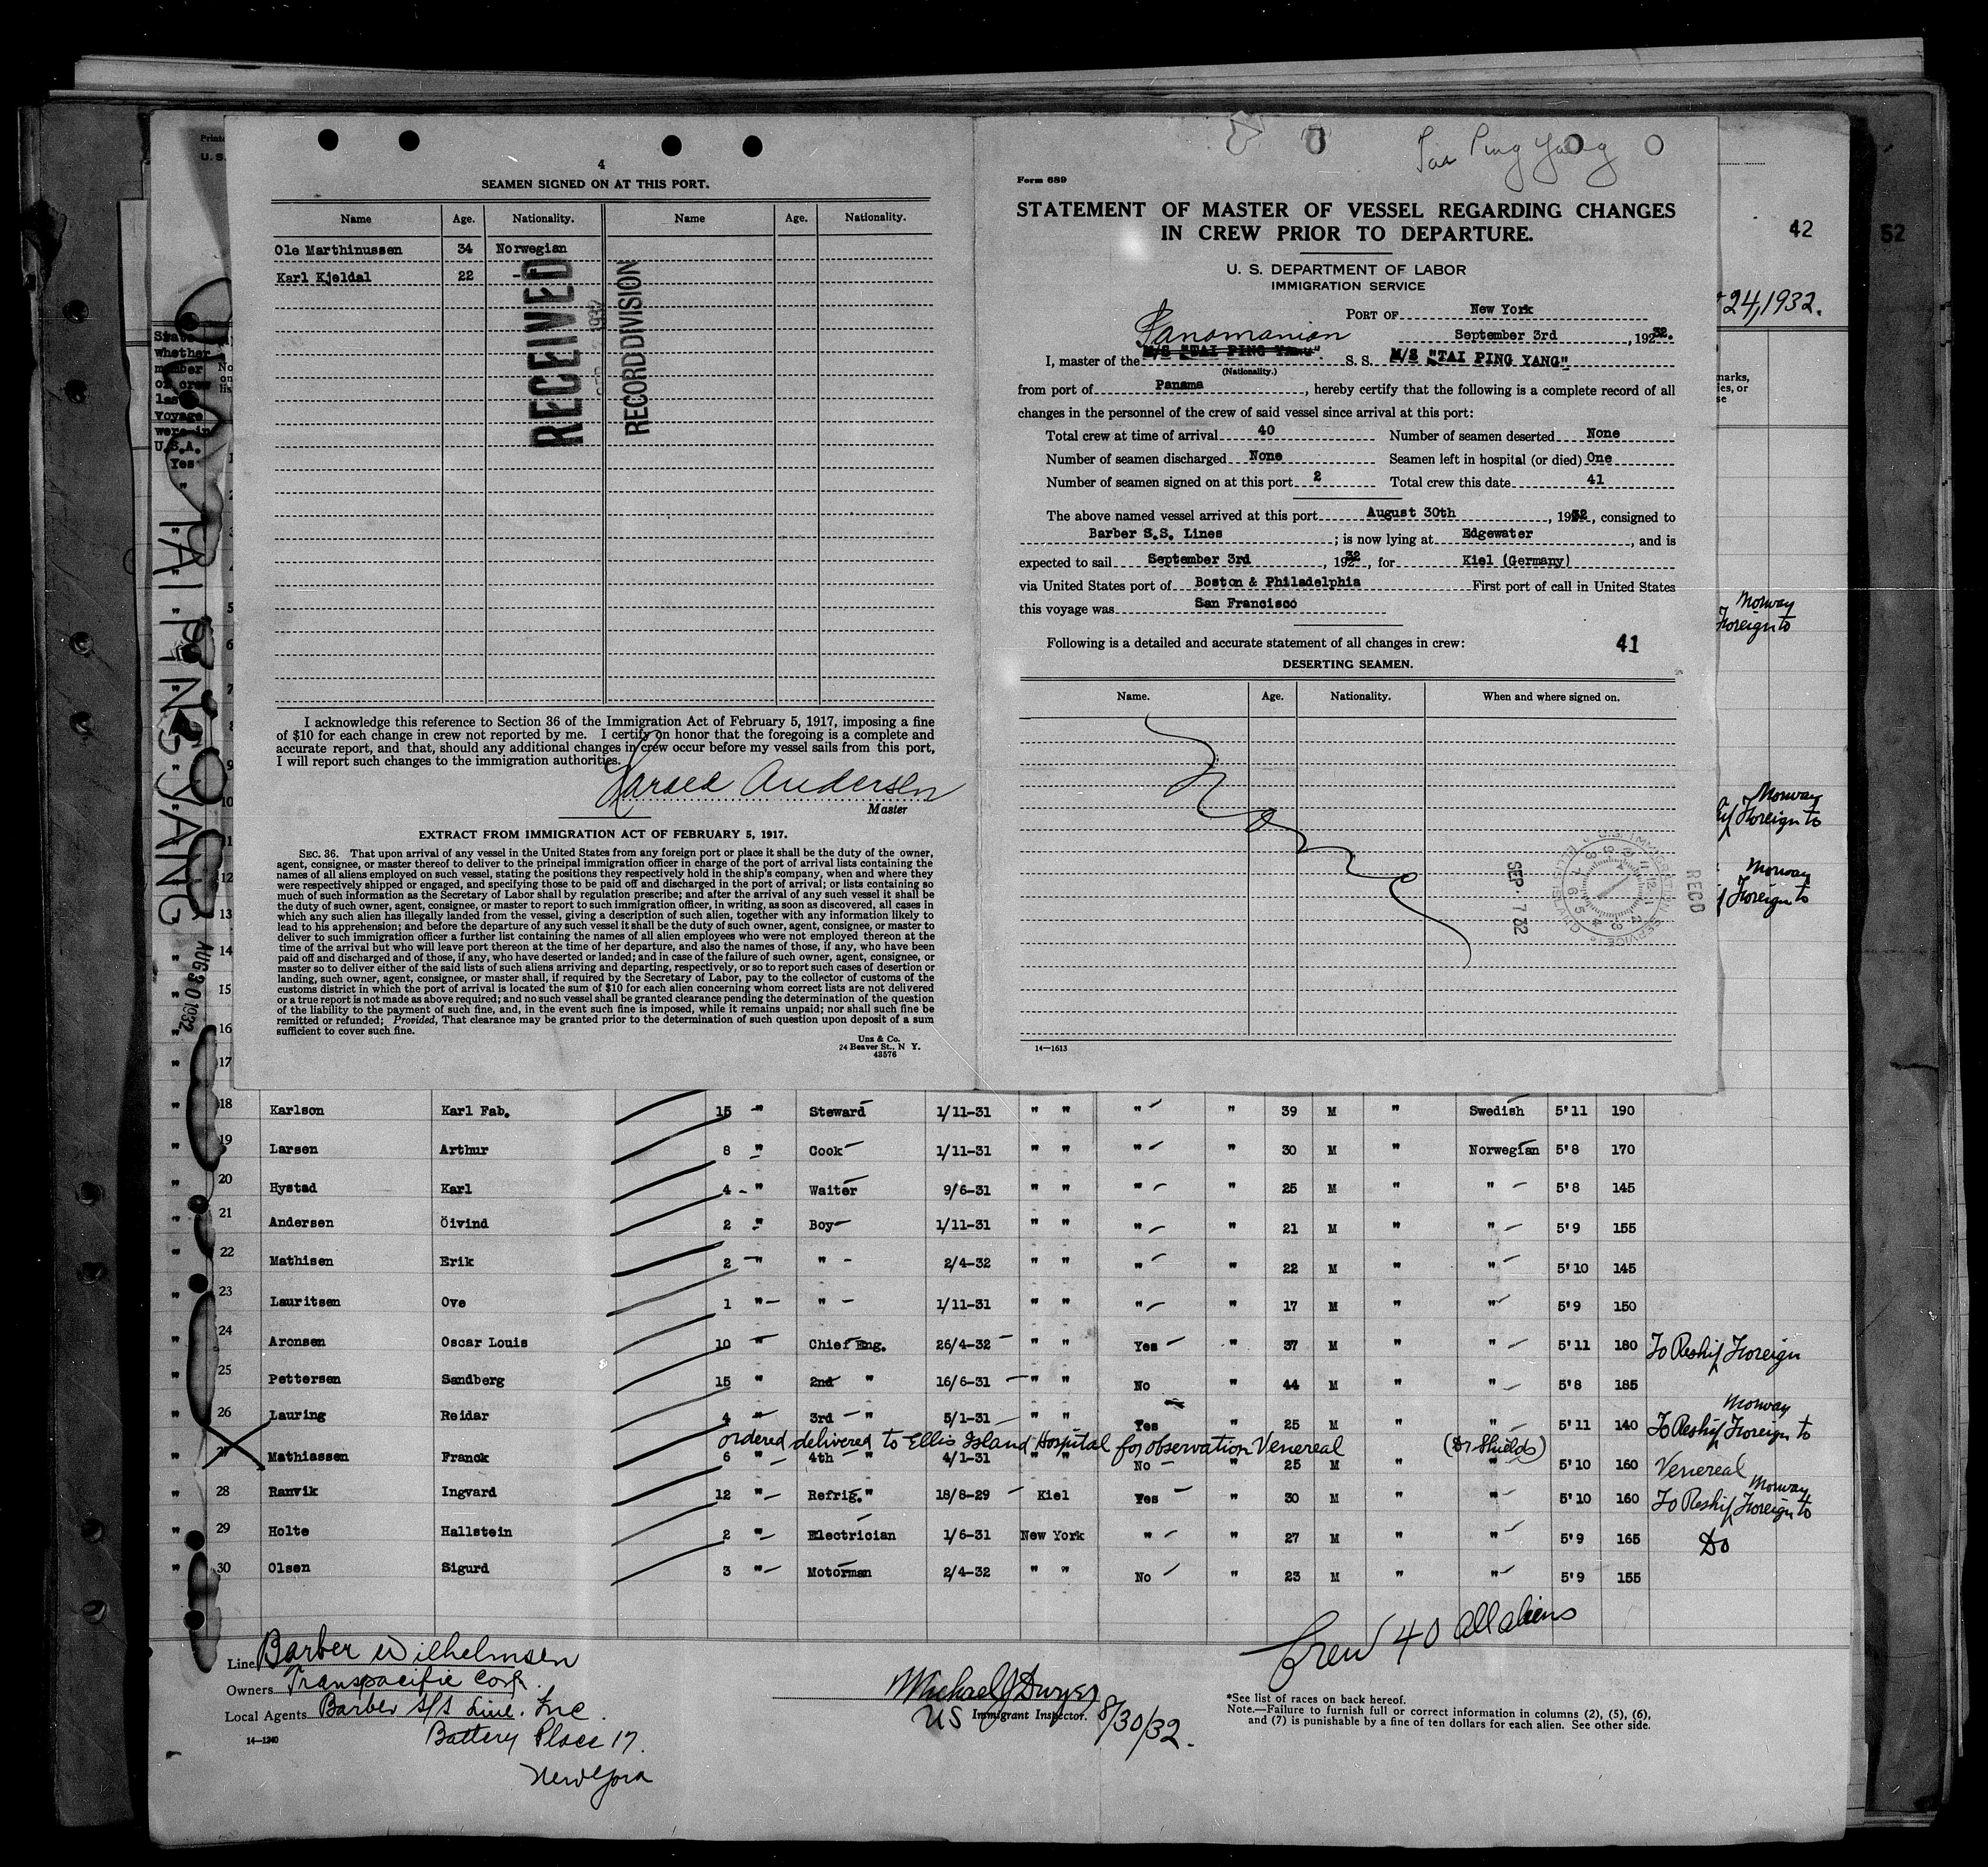 4
SEAMEN SIGNED ON AT THIS PORT.
Name Age. Nationality. Name Age. Nationality.
Ole Marthinussen 34 Norwegian
Karl Kjeldal 22 -"-
RECEIVED
RECORD DIVISION
I acknowledge this reference to Section 36 of the Immigration Act of February 5, 1917, imposing a fine
of $10 for each change in crew not reported by me. I certify on honor that the foregoing is a complete and
accurate report, and that, should any additional changes in crew occur before my vessel sails from this port,
I will report such changes to the immigration authorities.
Harald Andersen
Master
EXTRACT FROM IMMIGRATION ACT OF FEBRUARY 5, 1917.
SEC. 36. That upon arrival of any vessel in the United States from any foreign port or place it shall be the duty of the owner,
agent, consignee, or master thereof to deliver to the principal immigration officer in charge of the port of arrival lists containing the
names of all aliens employed on such vessel, stating the positions they respectively hold in the ship's company, when and where they
were respectively shipped or engaged, and specifying those to be paid off and discharged in the port of arrival; or lists containing so
much of such information as the Secretary of Labor shall by regulation prescribe; and after the arrival of any such vessel it shall be
the duty of such owner, agent, consignee, or master to report to such immigration officer, in writing, as soon as discovered, all cases in
which any such alien has illegally landed from the vessel, giving a description of such alien, together with any information likely to
lead to his apprehension; and before the departure of any such vessel it shall be the duty of such owner, agent, consignee, or master to
deliver to such immigration officer a further list containing the names of all alien employees who were not employed thereon at the
time of the arrival but who will leave port thereon at the time of her departure, and also the names of those, if any, who have been
paid off and discharged and of those, if any, who have deserted or landed; and in case of the failure of such owner, agent, consignee, or
master so to deliver either of the said lists of such aliens arriving and departing, respectively, or so to report such cases of desertion or
landing, such owner, agent, consignee, or master shall, if required by the Secretary of Labor, pay to the collector of customs of the
customs district in which the port of arrival is located the sum of $10 for each alien concerning whom correct lists are not delivered
or a true report is not made as above required; and no such vessel shall be granted clearance pending the determination of the question
of the liability to the payment of such fine, and, in the event such fine is imposed, while it remains unpaid; nor shall such fine be
remitted or refunded; Provided, That clearance may be granted prior to the determination of such question upon deposit of a sum
sufficient to cover such fine.
Unz & Co.
24 Beaver St., N Y.
43576
Tai Ping Yang
Form 689
STATEMENT OF MASTER OF VESSEL REGARDING CHANGES
IN CREW PRIOR TO DEPARTURE.
U. S. DEPARTMENT OF LABOR
IMMIGRATION SERVICE
PORT OF New York
September 3rd, 1932.
Panamanian
I, master of the M/S "TAI PING YANG". S. S. M/S "TAI PING YANG"
(Nationality.)
from port of Panama, hereby certify that the following is a complete record of all
changes in the personnel of the crew of said vessel since arrival at this port:
Total crew at time of arrival 40 Number of seamen deserted None
Number of seamen discharged None Seamen left in hospital (or died) One
Number of seamen signed on at this port 2 Total crew this date 41
The above named vessel arrived at this port August 30th, 1932, consigned to
Barber S.S. Lines; is now lying at Edgewater, and is
expected to sail September 3rd, 1932, for Kiel (Germany)
via United States port of Boston & Philadelphia First port of call in United States
this voyage was San Francisco
Following is a detailed and accurate statement of all changes in crew: 41
DESERTING SEAMEN.
Name. Age. Nationality. When and where signed on.
None
SEP 7 32
RECD
14—1613
42
52
24, 1932.
State
whether
member
of crew
last
voyage
were in
U.S.A.
Yes
TAI PING YANG
AUG 30 1932
Norway
Foreign to
Norway
Foreign to
Norway
Foreign to
18 Karlson Karl Fab. 15 " Steward 1/11-31 " " " " 39 M " Swedish 5'11 190
19 Larsen Arthur 8 " Cook 1/11-31 " " " " 30 M " Norwegian 5'8 170
20 Hystad Karl 4 " Waiter 9/6-31 " " " " 25 M " " 5'8 145
21 Andersen Öivind 2 " Boy 1/11-31 " " " " 21 M " " 5'9 155
22 Mathisen Erik 2 " " 2/4-32 " " " " 22 M " " 5'10 145
23 Lauritsen Ove 1 " " 1/11-31 " " " " 17 M " " 5'9 150
24 Aronsen Oscar Louis 10 " Chief Eng. 26/4-32 " " Yes " 37 M " " 5'11 180 To Reship Foreign
25 Pettersen Sandberg 15 " 2nd " 16/6-31 " " No " 44 M " " 5'8 185
26 Lauring Reidar 4 " 3rd " 5/1-31 " " Yes " 25 M " " 5'11 140 To Reship Foreign to Norway
ordered delivered to Ellis Island Hospital for observation Venereal (Dr Shields)
27 Mathiassen Franck 6 " 4th " 4/1-31 " " No " 25 M " " 5'10 160 Venereal
28 Ranvik Ingvard 12 " Refrig." 18/8-29 Kiel Yes " 30 M " " 5'10 160 To Reship Foreign to Norway
29 Holte Hallstein 2 " Electrician 1/6-31 New York " " 27 M " " 5'9 165 Do
30 Olsen Sigurd 3 " Motorman 2/4-32 " " No " 23 M " " 5'9 155
Crew 40 all aliens
Line Barber Wilhelmsen
Owners Transpacific Corp.
Local Agents Barber S/S Line. Inc.
Battery Place 17.
New York
14—1240
Michael J Dwyer
US Immigrant Inspector. 8/30/32.
*See list of races on back hereof.
Note.—Failure to furnish full or correct information in columns (2), (5), (6),
and (7) is punishable by a fine of ten dollars for each alien. See other side.